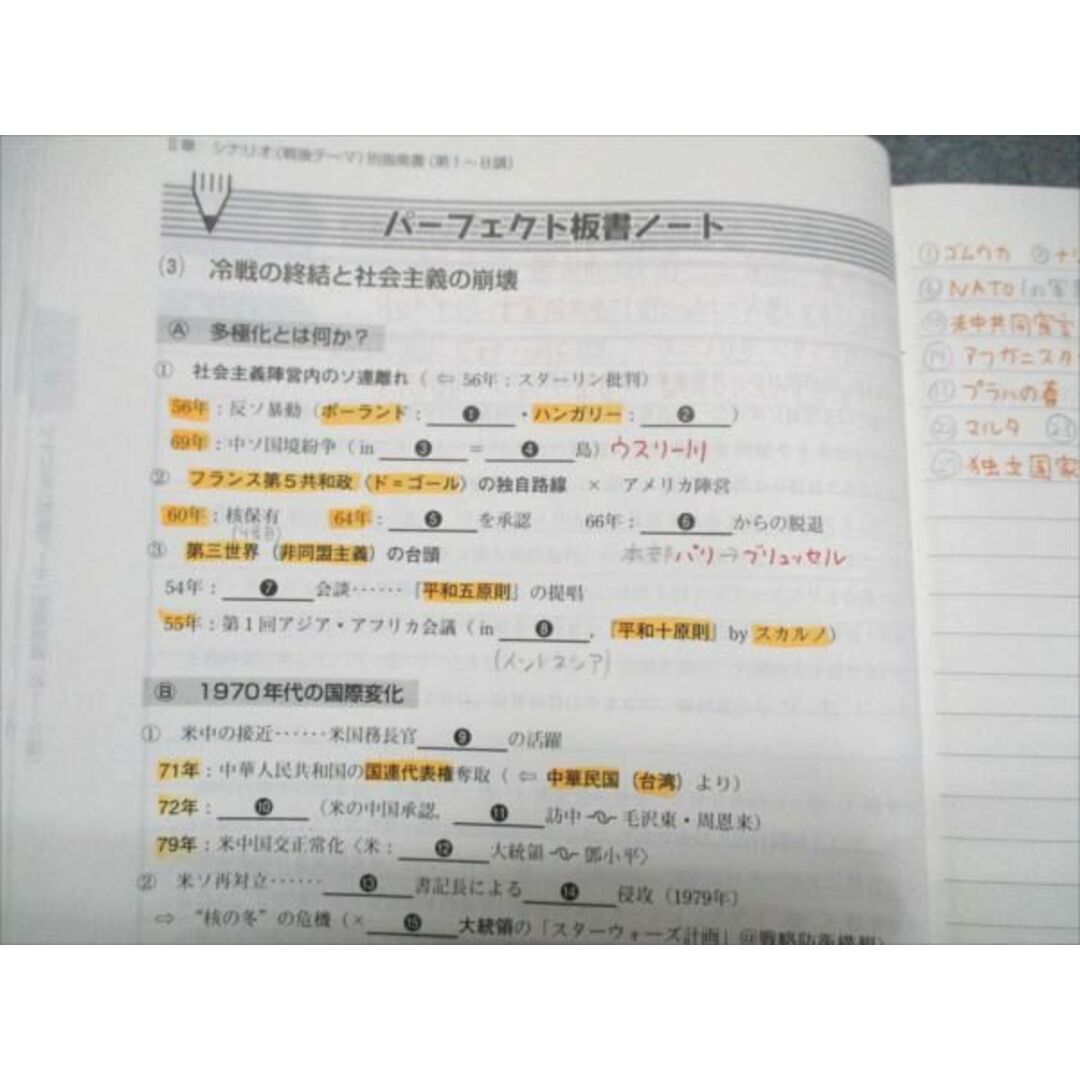 Ⅱ章 シナリオ(戦後テーマ)別指南書(第1〜8講)
パーフェクト板書ノート
(3) 冷戦の終結と社会主義の崩壊
Ⓐ 多極化とは何か?
① 社会主義陣営内のソ連離れ(⇦56年:スターリン批判)
56年:反ソ暴動(ポーランド:❶・ハンガリー:❷)
69年:中ソ国境紛争(in ❸=❹島)ウスリー川
② フランス第5共和政(ド=ゴール)の独自路線 × アメリカ陣営
60年:核保有 64年:❺を承認 66年:❻からの脱退
(4番目)
本部パリ→ブリュッセル
③ 第三世界(非同盟主義)の台頭
54年:❼会談……「平和五原則」の提唱
55年:第1回アジア・アフリカ会議(in ❽,「平和十原則」by スカルノ)
(インドネシア)
Ⓑ 1970年代の国際変化
① 米中の接近……米国務長官❾の活躍
71年:中華人民共和国の国連代表権奪取(⇦中華民国(台湾)より)
72年:❿(米の中国承認,⓫訪中〜毛沢東・周恩来)
79年:米中国交正常化〈米:⓬大統領〜鄧小平〉
② 米ソ再対立……⓭書記長による⓮侵攻(1979年)
⇨ “核の冬”の危機(×⓯大統領の「スターウォーズ計画」@戦略防衛構想)
① ゴムウカ ② ナジ
⑥ NATO
⑩ 米中共同宣言
⑭ アフガニスタ
プラハの春
㉒ マルタ ㉓
独立国家